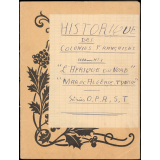 HISTORIQUE
DES
COLONIES FRANCAISES
"L'AFRIQUE DU NORD"
"MAROC ALGERIE TUNISIE"
Série O.P.A.S.T.